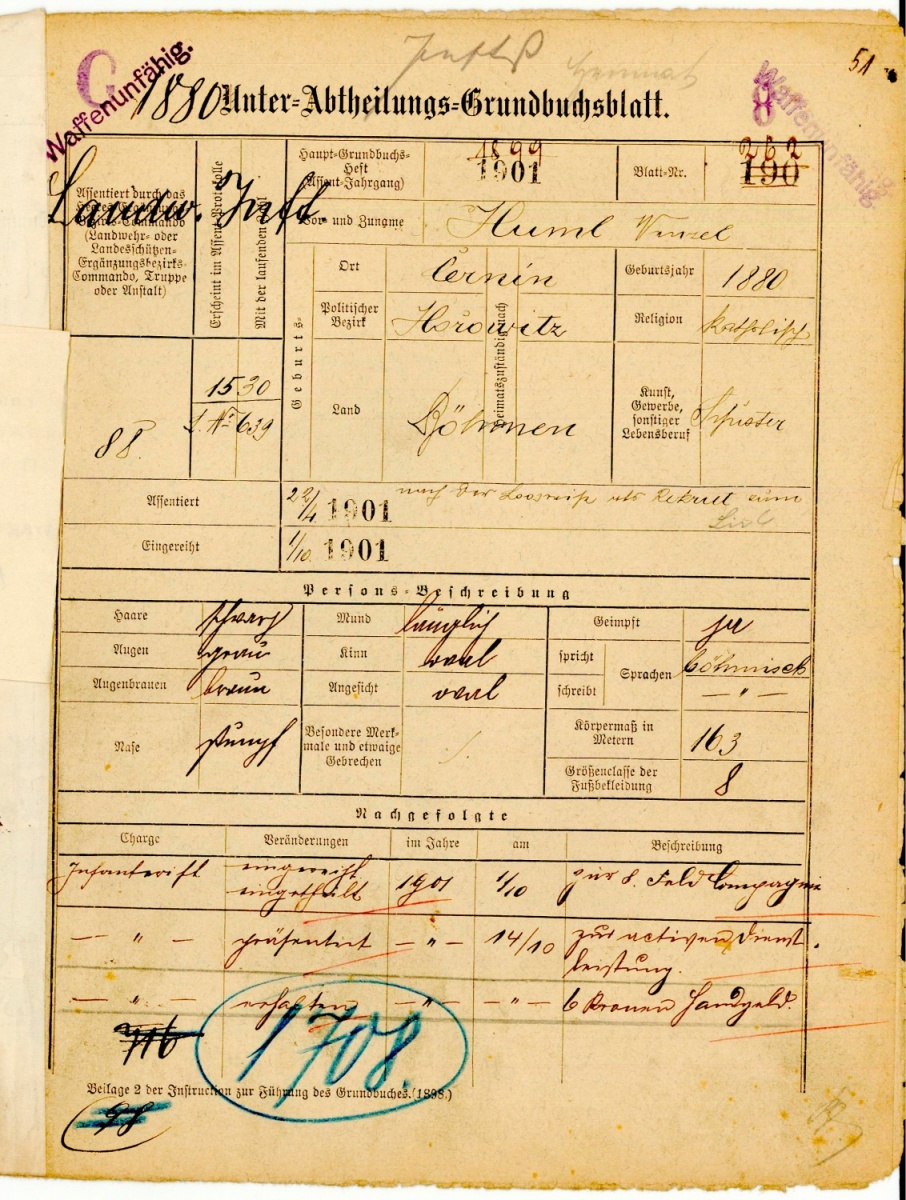 51
G
Waffenunfähig.
8
Waffenunfähig.
1880 Unter-Abtheilungs-Grundbuchsblatt.
Assentiert durch das
(Landwehr- oder
Landesschützen-
Ergänzungsbezirks-
Commando, Truppe
oder Anstalt)
Landw. Inft
Erscheint im Assent-Protokolle
Mit der laufenden
88
1530
639
Haupt-Grundbuchs-
Heft
(Assent-Jahrgang)
1899
1901
Blatt-Nr.
262
190
Vor- und Zuname
Huml Wenzel
Geburts-
Ort
Černin
Geburtsjahr
1880
Politischer
Bezirk
Hořowitz
Heimatszuständig nach
Religion
katholisch
Land
Böhmen
Kunst,
Gewerbe,
sonstiger
Lebensberuf
Schuster
Assentiert
22/4 1901
nach der Losreihe als Rekrut zum
Eingereiht
1/10. 1901
Persons-Beschreibung
Haare schwarz Mund länglich Geimpft ja
Augen grau Kinn oval spricht Sprachen böhmisch
Augenbrauen braun Angesicht oval schreibt — " —
Nase stumpf
Besondere Merk-
male und etwaige
Gebrechen
/
Körpermaß in
Metern
163
Größenclasse der
Fußbekleidung
8
Nachgefolgte
Charge Veränderungen im Jahre am Beschreibung
Infanterist eingereiht
eingetheilt 1901 1/10 zur 8. Feld Compagnie
— " — präsentiert — " — 14/10 zur activen Dienst-
leistung.
— " — erhalten — " — — " — 6 Kronen Handgeld.
716
1708.
Beilage 2 der Instruction zur Führung des Grundbuches. (1898.)
98